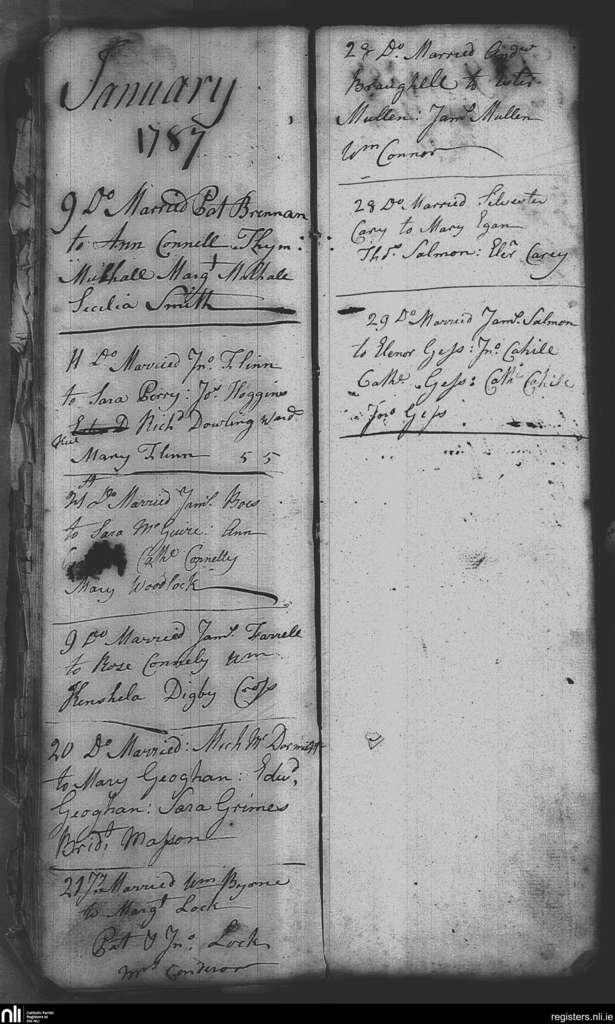 January
1787
9 Do Married Pat Brennan
to Ann Connell Thym:
Mulhall Margt Mulhale
Secilia Smith
11 Do Married Jno Flinn
to Sara Perry: Jos Hoggins
Richd Dowling Ward
Mary Flinn 5 5
Do Married Jams Boes
to Sara McGuire: Ann
Cathe Connelly
Mary Woodlock
9 Do Married Jams Farrell
to Rose Connely Wm
Henshela Digby Cross
20 Do Married: Mich McDormitt
to Mary Geoghan: Edwd,
Geoghan: Sara Grimes
Bridt Masson
Married Wm Byone
to Margt Lock
Pat & Jno Lock
28 Do Married Andw
Braughell to Ester
Mullen: Jams Mullen
Wm Connor
28 Do Married Silvester
Cary to Mary Egan
Thos Salmon: Eler Carey
29 Do Married Jams Salmon
to Elenor Gess: Jno Cahill
Cathe Gess: Cathe Cahill
Jno Gess
nli
Catholic Parish
Registers at
the NLI
registers.nli.ie